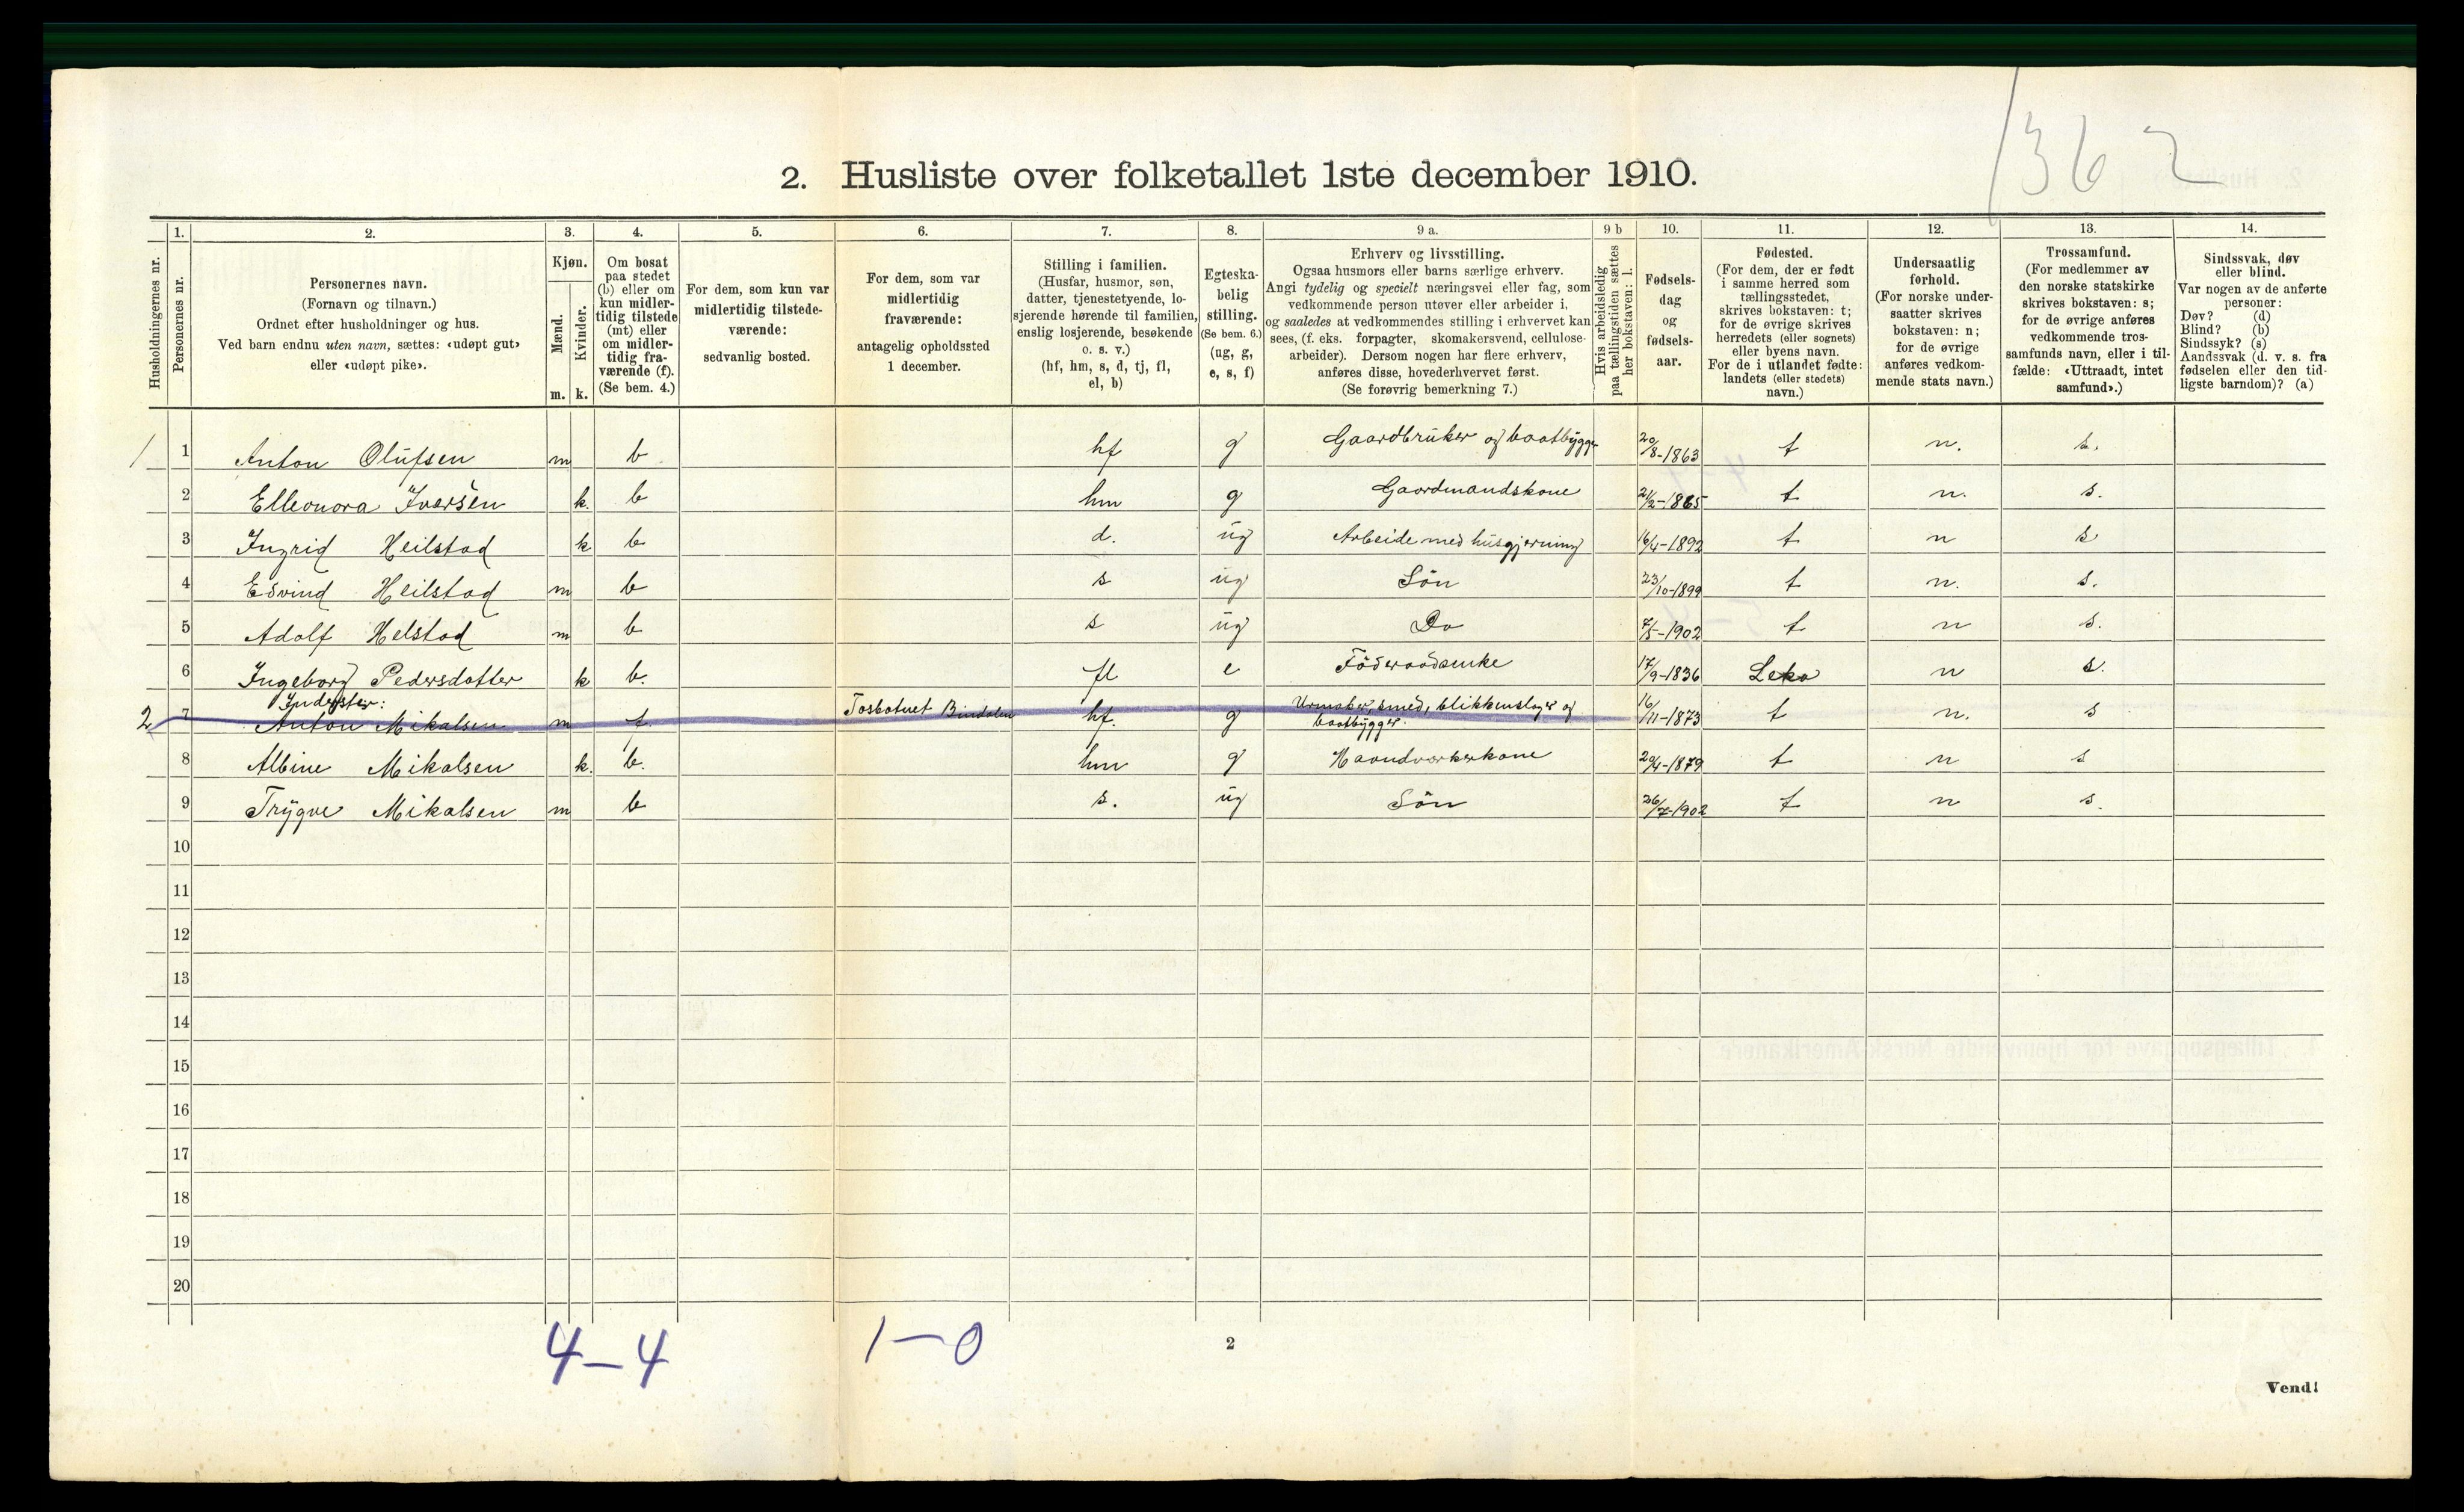 1362
2. Husliste over folketallet 1ste december 1910.
Husholdningernes nr.
1. Personernes nr.
2. Personernes navn.
(Fornavn og tilnavn.)
Ordnet efter husholdninger og hus.
Ved barn endnu uten navn, sættes: «udøpt gut»
eller «udøpt pike».
3. Kjøn.
Mænd. m.
Kvinder. k.
4. Om bosat
paa stedet
(b) eller om
kun midler-
tidig tilstede
(mt) eller
om midler-
tidig fra-
værende (f).
(Se bem. 4.)
5. For dem, som kun var
midlertidig tilstede-
værende:
sedvanlig bosted.
6. For dem, som var
midlertidig
fraværende:
antagelig opholdssted
1 december.
7. Stilling i familien.
(Husfar, husmor, søn,
datter, tjenestetyende, lo-
sjerende hørende til familien,
enslig losjerende, besøkende
o. s. v.)
(hf, hm, s, d, tj, fl,
el, b)
8. Egteska-
belig
stilling.
(Se bem. 6.)
(ug, g,
e, s, f)
9 a. Erhverv og livsstilling.
Ogsaa husmors eller barns særlige erhverv.
Angi tydelig og specielt næringsvei eller fag, som
vedkommende person utøver eller arbeider i,
og saaledes at vedkommendes stilling i erhvervet kan
sees, (f. eks. forpagter, skomakersvend, cellulose-
arbeider). Dersom nogen har flere erhverv,
anføres disse, hovederhvervet først.
(Se forøvrig bemerkning 7.)
9 b Hvis arbeidsledig
paa tællingstiden sættes
her bokstaven: l.
10. Fødsels-
dag
og
fødsels-
aar.
11. Fødested.
(For dem, der er født
i samme herred som
tællingsstedet,
skrives bokstaven: t;
for de øvrige skrives
herredets (eller sognets)
eller byens navn.
For de i utlandet fødte:
landets (eller stedets)
navn.)
12. Undersaatlig
forhold.
(For norske under-
saatter skrives
bokstaven: n;
for de øvrige
anføres vedkom-
mende stats navn.)
13. Trossamfund.
(For medlemmer av
den norske statskirke
skrives bokstaven: s;
for de øvrige anføres
vedkommende tros-
samfunds navn, eller i til-
fælde: «Uttraadt, intet
samfund».)
14. Sindssvak, døv
eller blind.
Var nogen av de anførte
personer:
Døv? (d)
Blind? (b)
Sindssyk? (s)
Aandssvak (d. v. s. fra
fødselen eller den tid-
ligste barndom)? (a)
1 1 Anton Olufsen m b hf g Gaardbruker og baatbygger 20/8-1863 t n. s.
2 Elleonora Iversen k. b hm g Gaardmandskone 21/2-1865 t n. s.
3 Ingrid Heilstad k b d. ug Arbeide med husgjerning 16/4-1892 t n s
4 Edvind Heilstad m b s ug Sön 23/10-1899 t n. s.
5 Adolf Helstad m b s ug Do 7/5-1902 t n s.
6 Ingeborg Pedersdatter k b. fl e Föderaadsenke 17/9-1836 Leka n s.
Inderster:
2 7 Anton Mikalsen m f. Tosbotnet Bindalen hf. g Urmaker, smed, blikkenslager og
baatbygger. 16/11-1873 t n. s
8 Albine Mikalsen k. b. hm g Haandverkerkone 20/4-1879 t n s
9 Trygve Mikalsen m b s. ug Sön 26/7-1902 t n s.
10
11
12
13
14
15
16
17
18
19
20
4-4 1-0
2
Vend!